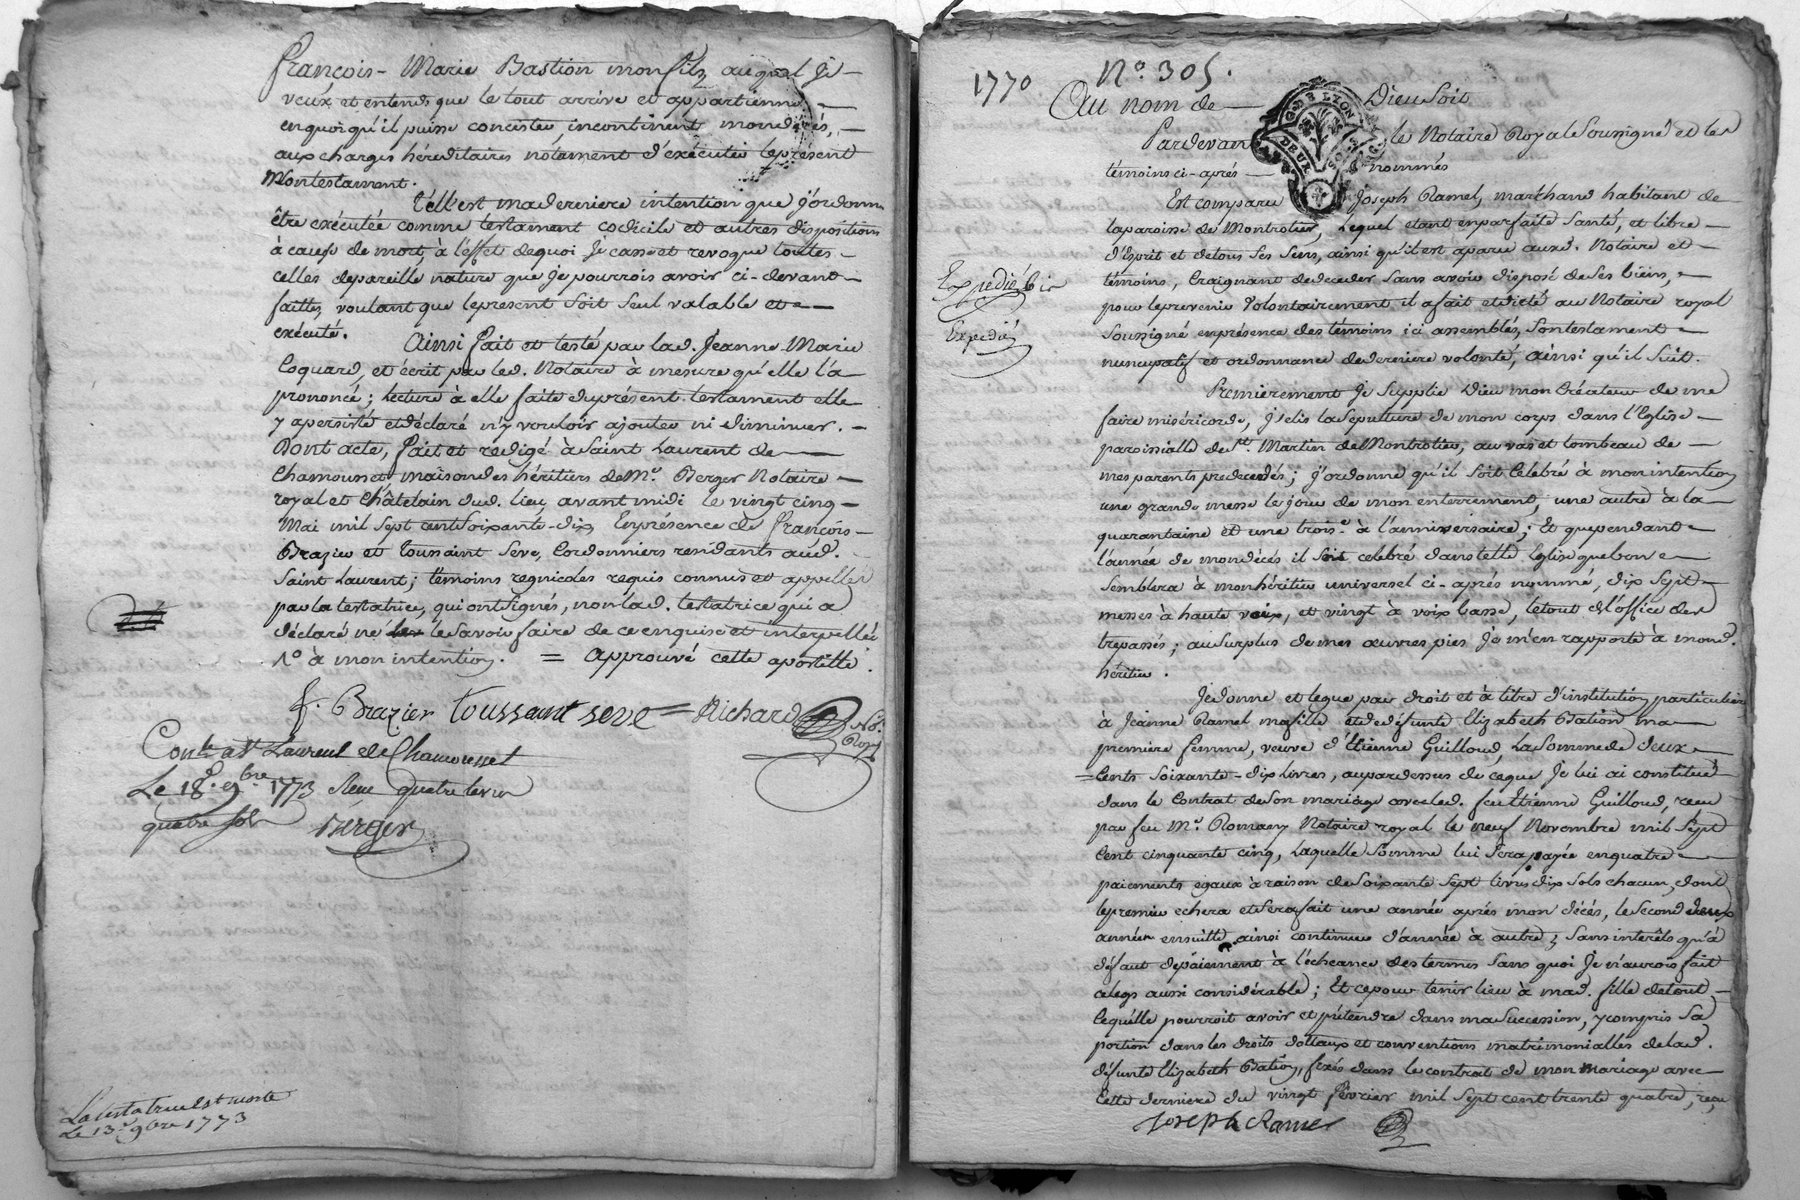 françois - Marie Bastion mon fils auquel Je
veux et entends que le tout arrive et appartienne
en quoi qu'il puisse concister incontinent mon décès,
aux charges héréditaires notament d'exécuter le présent
Mon testament.
Telle est ma derniere intention que j'ordonne
être exécutée comme testament codicile et autres dispositions
à cause de mort, à l'effet de quoi Je casse et revoque toutes
celles de pareille nature que Je pourrois avoir ci-devant
faittes, voulant que le present soit seul valable et
exécuté.
Ainsi fait et testé par lad. Jeanne Marie
Esquard, et écrit par led. Notaire à mesure qu'elle l'a
prononcé; lecture à elle faite du présent testament elle
y a persisté et déclaré n'y vouloir ajouter ni diminuer.
Dont acte, fait et redigé à Saint Laurent de
Chamousset maison des héritiers de Mr. Berger Notaire
royal et Châtelain dud. lieu, avant midi le vingt cinq
Mai mil sept cent soixante-dix, En présence de françois
Brazier et Toussaint Seve, Cordonniers residants aud.
Saint Laurent; témoins regnicoles requis connus et appellés
par la testatrice, qui ont signés, non lad. testatrice qui a
déclaré ne le savoir faire de ce enquise et interpellée
1º à mon intention. = approuvé cette apostille.
f. Brazier toussaint seve = Richard No. Roy.
Conlé a St Laurent de Chamousset
Le 18e. 9bre 1773 Reçu quatre livres
quatre sols Berger
La testatrice est morte
Le 13e 9bre 1773
1770 Nº. 305.
Au nom de Dieu Soit
G. DE LYON
DEUX SOLS
Pardevant le Notaire Royal Soussigné et les
témoins ci-après nommés
Est comparu Joseph Ramel, marchand habitant de
la paroisse de Montrotier, Lequel etant en parfaite santé, et libre
d'Esprit et de tous ses sens, ainsi qu'il est aparu auxd. Notaire et
Expedié bis
témoins, Craignant de deceder sans avoir disposé de ses biens,
pour le prevenir Volontairement il a fait et dicté au Notaire royal
Expedié
soussigné en présence des témoins ici assemblés, son testament
nuncupatif et ordonnance de derniere volonté, ainsi qu'il suit.
Premierement Je Supplie Dieu mon Créateur de me
faire miséricorde, J'elis la sépulture de mon corps dans l'Eglise
paroissialle de St. Martin de Montrotier, au vas et tombeau de
mes parents predecedés; j'ordonne qu'il soit Célébré à mon intention
une grande messe le jour de mon enterrement, une autre à la
quarantaine et une trois.e à l'anniversaire; Et que pendant
l'année de mon décès il soit celebré dans telle Eglise que bon
semblera à mon héritier universel ci-après nommé, dix sept
messes à haute voix, et vingt à voix basse, le tout de l'office des
trepassés; au surplus de mes œuvres pies Je m'en rapporte à mond.
héritier.
Je donne et legue par droit et à titre d'institution particuliere
à Jeanne Ramel ma fille et de défunte Elizabeth Bation ma
premiere femme, veuve d'Etienne Guilloud, La somme de deux
cents soixante-dix livres, au par dessus de ce que Je lui ai constitué
dans le Contrat de son mariage avec led. feu Etienne Guilloud, recu
par feu Mr. Romany Notaire royal le neuf Novembre mil sept
Cent cinquante cinq, Laquelle somme lui sera payée en quatre
paiements egaux à raison de soixante sept livres dix sols chacun, dont
le premier echera et sera fait une année après mon décès, le second deux
années ensuitte, ainsi continuer d'année à autre, sans interêts qu'à
défaut de paiement à l'écheance des termes sans quoi Je n'aurois fait
ce legs aussi considérable; Et ce pour tenir lieu à mad. fille de tout
ce qu'elle pourroit avoir et prétendre dans ma succession, y compris sa
portion dans les droits dottaux et conventions matrimonialles de lad.
défunte Elizabeth Bation, fixés dans le contrat de mon mariage avec
cette derniere du vingt février mil sept cent trente quatre, reçu
Joseph Ramel